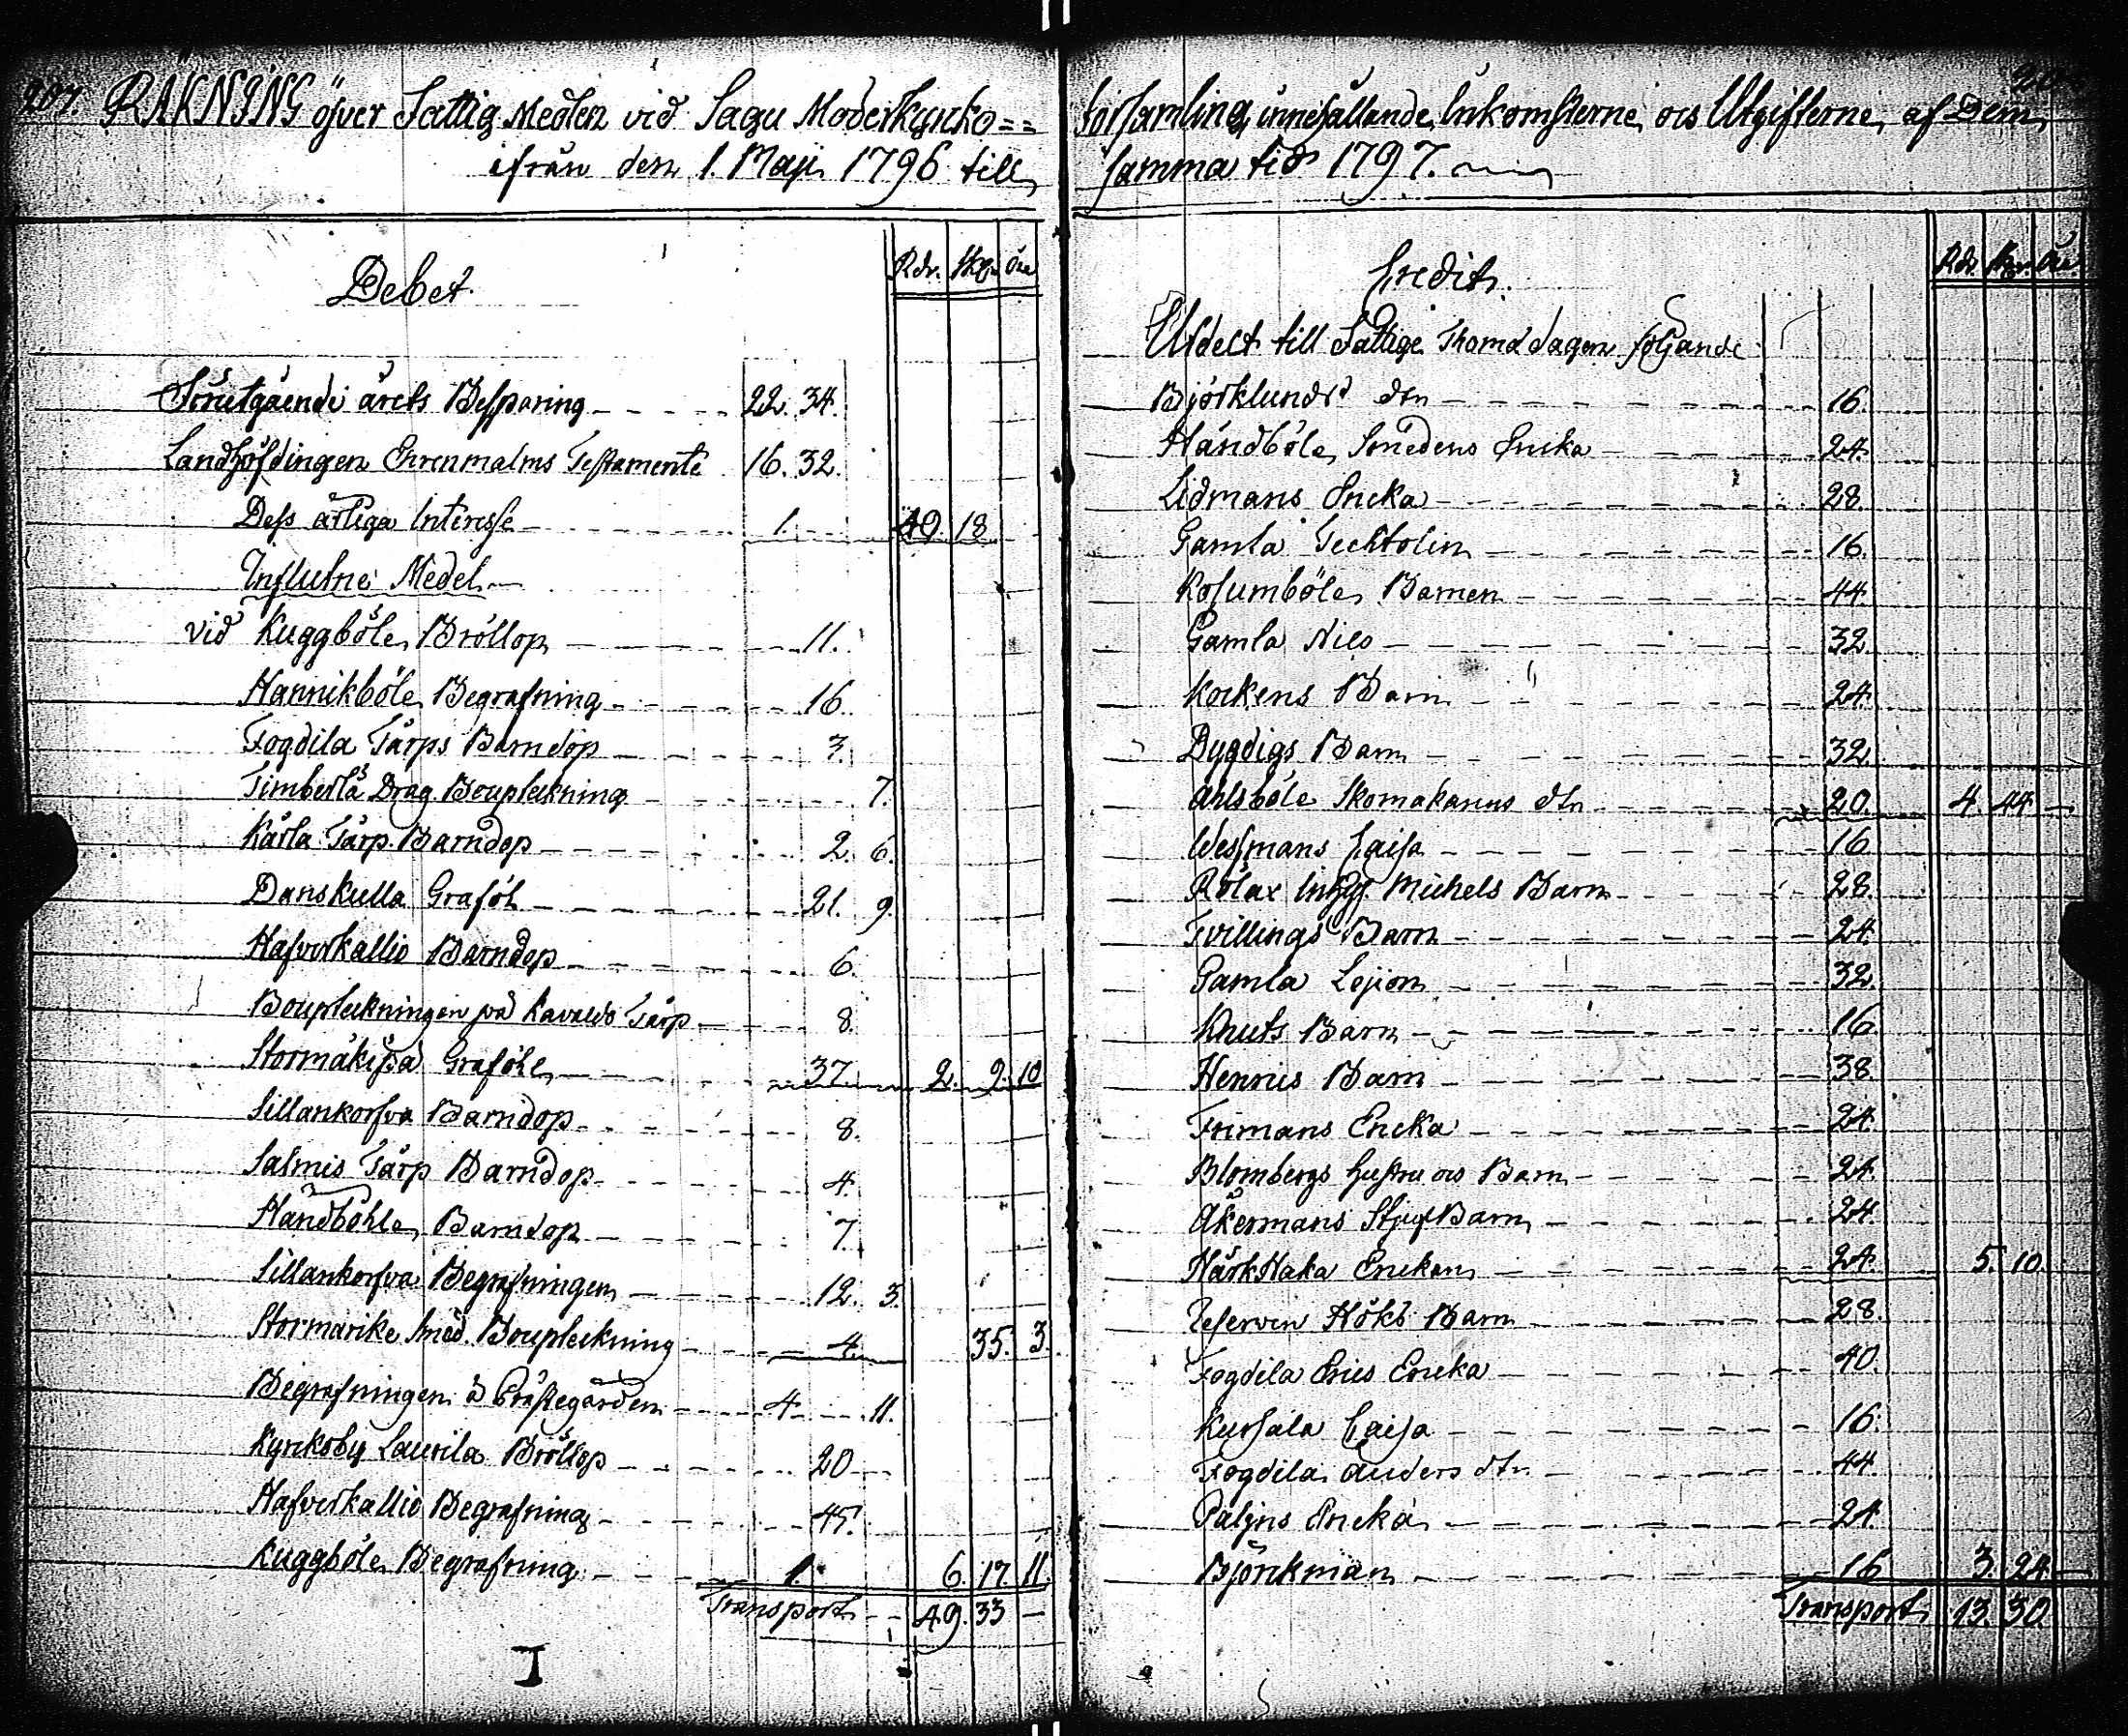 207. RÄKNING öfver Fattig Medlen vid Sagu Moderkyrko==
ifrån den 1. Maji 1796 till
Debet. Rdr. Sk. Öre
Förutgående årets Besparing 22. 34.
Landshöfdingen Ehrenmalms Testamente 16. 32.
Dess årliga Interesse 1. 40. 18.
Influtne Medel
vid Kuggböle Bröllop 11.
Hannikböle Begrafning 16.
Fogdila Tårps Barndop 3.
Timberla Drag Bouptekning 7.
Kårla Tårp Barndop 2. 6.
Danskulla Graföl 21. 9.
Hafverkallio Barndop 6.
Bouptekningen på Kavalds Tårp 8.
Stormäkipä Graföhl 37. 2. 9. 10
Sillankorfva Barndop 8.
Salmis Tårp Barndop 4.
Handböhle Barndop 7.
Sillankorfva Begrafningen 12. 3.
Stormarike Smed. Bouptekning 4. 35. 3.
Begrafningen å Prästegården 4. 11.
Kyrckoby Laurila Bröllop 20
Hafverkallio Begrafning 45.
Kuggböle Begrafning 1. 6. 17. 11
Transport 49. 33 —
I
församling innehållande Inkomsterne och Utgifterne af Dem
samma tid 1797.
Credit. Rdr. Sk. Öre.
Utdelt till Fattige Thomæ dagen följande
Björklunds dtn 16.
Håndböle Smedens Enka 24.
Lidmans Encka 28.
Gamla Techtolin 16.
Kosumböle Barnen 44.
Gamla Nils 32.
Kockens Barn 24.
Dygdigs Barn 32.
Ahlsböle Skomakarens dtn 20. 4. 44. —
Wessmans Caisa 16
Rölax Inhys Michels Barn 28.
Tvillings Barn 24.
Gamla Lejion 32.
Knuts Barn 16.
Henrics Barn 38.
Frimans Encka 24.
Blombergs hustru och Barn 24.
Åkermans StjufBarn 24.
Härkhaka Enckan 24. 5. 10.
Reserven Höks Barn 28.
Fogdila Erics Encka 40.
Kursala Caisa 16.
Fogdila Anders dtr 44.
Palins Encka 24.
Björckman 16 3. 24 —
Transport 13. 30.